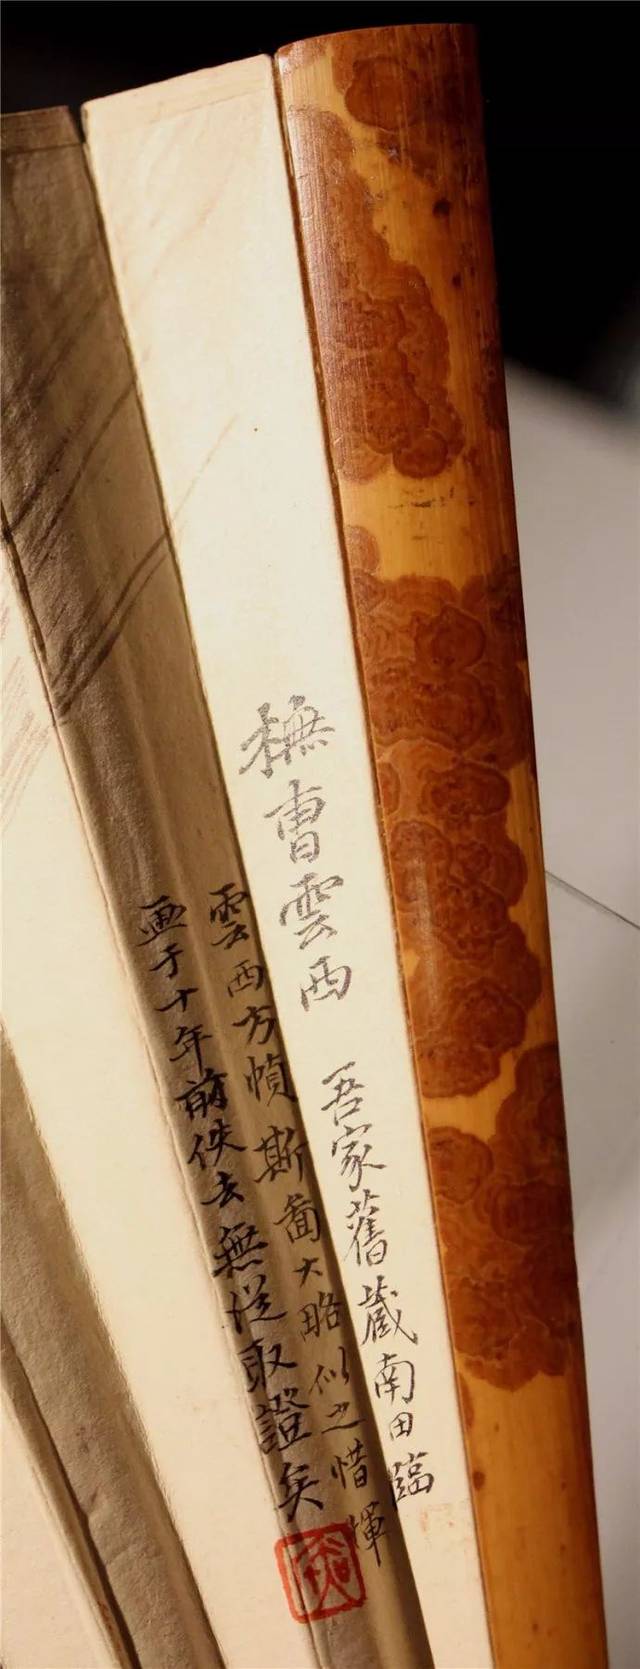 橅曹雲西 吾家舊藏南田臨
雲西方幀斯啚大略似之惜惲
画于十年前佚去無從取證矣